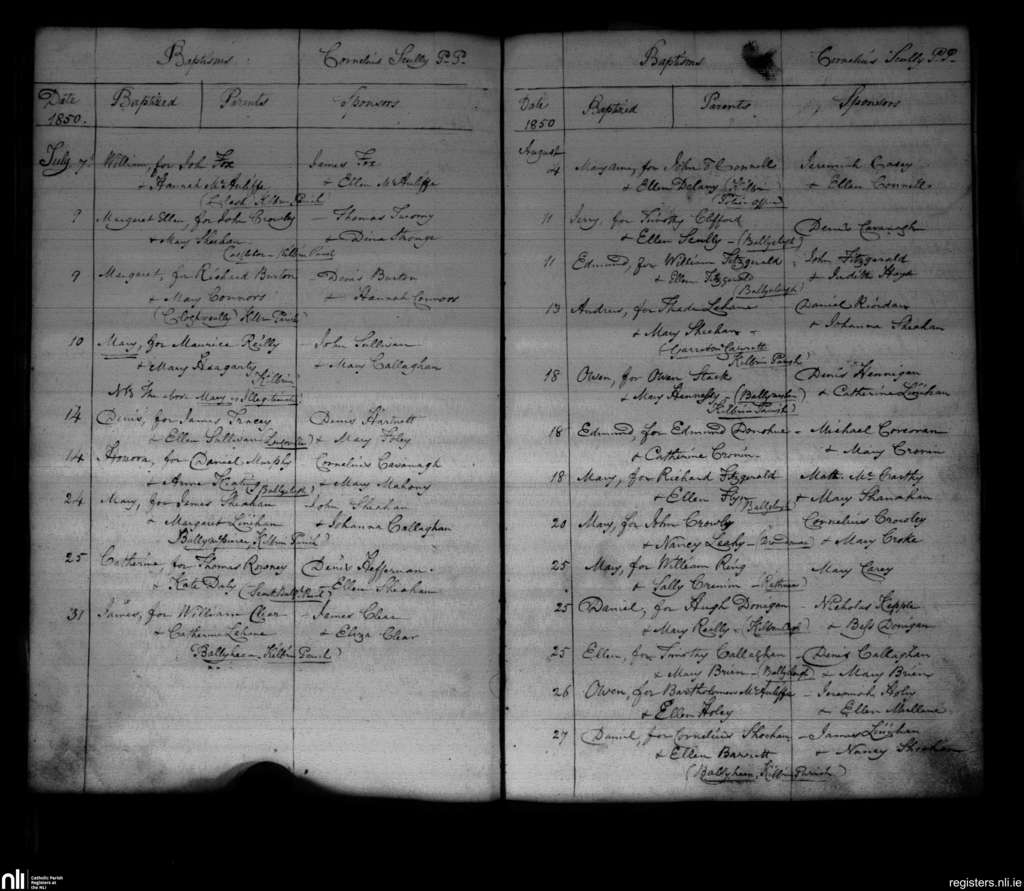 Baptisms Cornelius Scully P.P.
Date Baptized Parents Sponsors
1850.
July 7 William, for Joh Fox James Fox
+ Hannah McAuliffe + Ellen McAuliffe
Kilbrin Parish
9 Margaret Ellen, for John Crowly Thomas
+ Mary Sheehan + Dina
Kilbrin Parish
9 Margaret, for Richard Burton Denis Burton
+ Mary Connors + Hannah Connors
Kilbrin Parish)
10 Mary, for Maurice Reilly John Sullivan
+ Mary Heagarty (Kilbrin) + Mary Callaghan
NB The above Mary is Illegitimate
14 Denis, for James Tracey Denis Hartnett
+ Ellen Sullivan + Mary Foley
14 Honora, for Daniel Murphy Cornelius Cavanagh
+ Anne Keating + Mary Mahony
24 Mary, for James Sheahan John Sheahan
+ Margaret Linehan + Johanna Callaghan
Kilbrin Parish)
25 Catherine, for Thomas Denis Heffernan
+ Kate Daly + Ellen Sheahan
31 James, for William Clear James Clear
+ Catherine Lehane + Eliza Clear
Ballyheen, Kilbrin Parish)
Baptisms Cornelius Scully P.P.
Date Baptized Parents Sponsors
1850
August
4 Maryanne, for John O'Connell Jeremiah Casey
+ Ellen Delany (Kilbrin + Ellen Connell
11 Jerry, for Timothy Clifford Denis Cavanagh
+ Ellen Scully
11 Edmund, for William Fitzgerald John Fitzgerald
+ Ellen Fitzgerald + Judith Hays
13 Andrew, for Thade Lehane Daniel Riordan
+ Mary Sheehan + Johanna Sheahan
Kilbrin Parish)
18 Owen, for Owen Stack Denis Hennigan
+ Mary Hennessy + Catherine Linehan
Kilbrin Parish)
18 Edmund for Edmund Donohue Michael Corcoran
+ Catherine Cronin + Mary Cronin
18 Mary, for Richard Fitzgerald Matt McCarthy
+ Ellen Flyn + Mary Shanahan
20 Mary, for John Crowly Cornelius Crowley
+ Nancy Leahy + Mary Croke
25 Mary, for William Ring Mary Carey
+ Sally Cremin
25 Daniel, for Hugh Donigan Nicholas Kepple
+ Mary Reilly + Bess Donigan
25 Ellen, for Timothy Callaghan Denis Callaghan
+ Mary Brien + Mary Brien
26 Owen, for Bartholomew McAuliffe Jeremiah Foley
+ Ellen Foley + Ellen Mullane
27 Daniel, for Cornelius Sheehan James Linehan
+ Ellen Barrett + Nancy Sheehan
(Ballyheen, Kilbrin Parish)
nli
Catholic Parish
Registers at
the NLI
registers.nli.ie